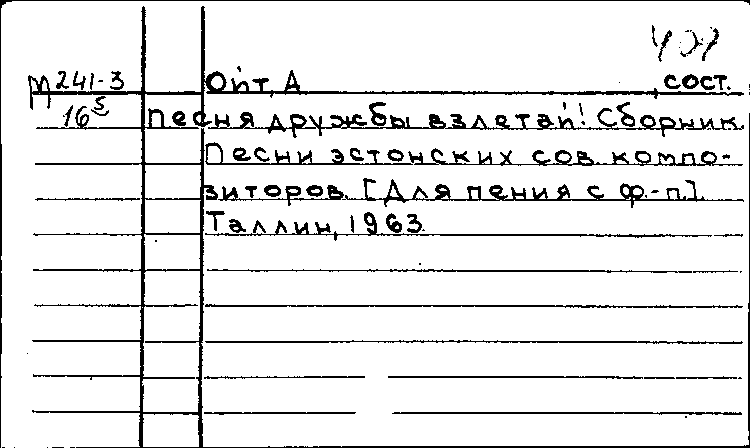 М 241-3 Ойт, А , сост.
16⁵ Песня дружбы взлетай! Сборник.
Песни эстонских сов. компо-
зиторов. [Для пения с ф.-п.].
Таллин, 1963.